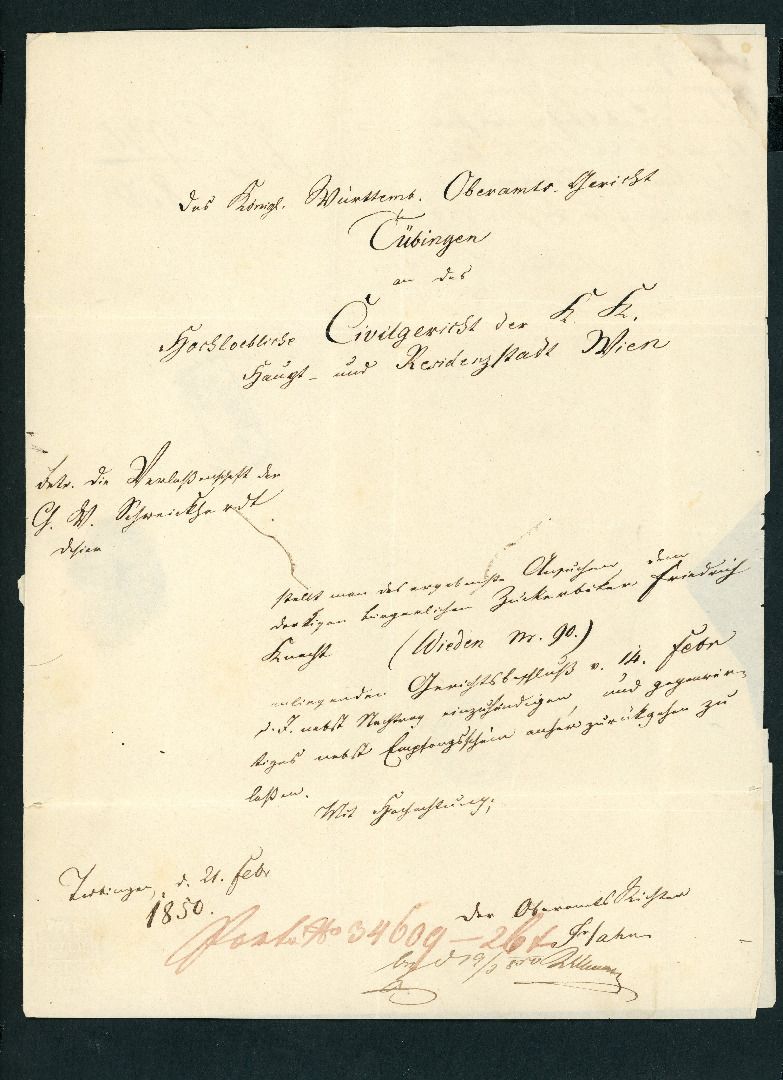 Das Königl. Württemb. Oberamts-Gericht
Tübingen
an das
Hochloebliche Civilgericht der K. K.
Haupt- und Residenzstadt Wien
betr. die Verlaßenschaft der
Schweickhardt
stellt man das ergebenste Ansuchen, dem
dortigen bürgerlichen Zuckerbäker Friedrich
Knecht (Wieden Nr. 90.)
anliegenden Gerichtsbeschluß v. 14. Febr
d. J. nebst Nachtrag einzuhändigen, und gegenwär-
tiges nebst Empfangsschein anher zurückgehen zu
laßen.
Mit Hochachtung,
Tübingen, d. 21. Febr
1850.
Der OberamtsRichter
Porto No 34609 – 26